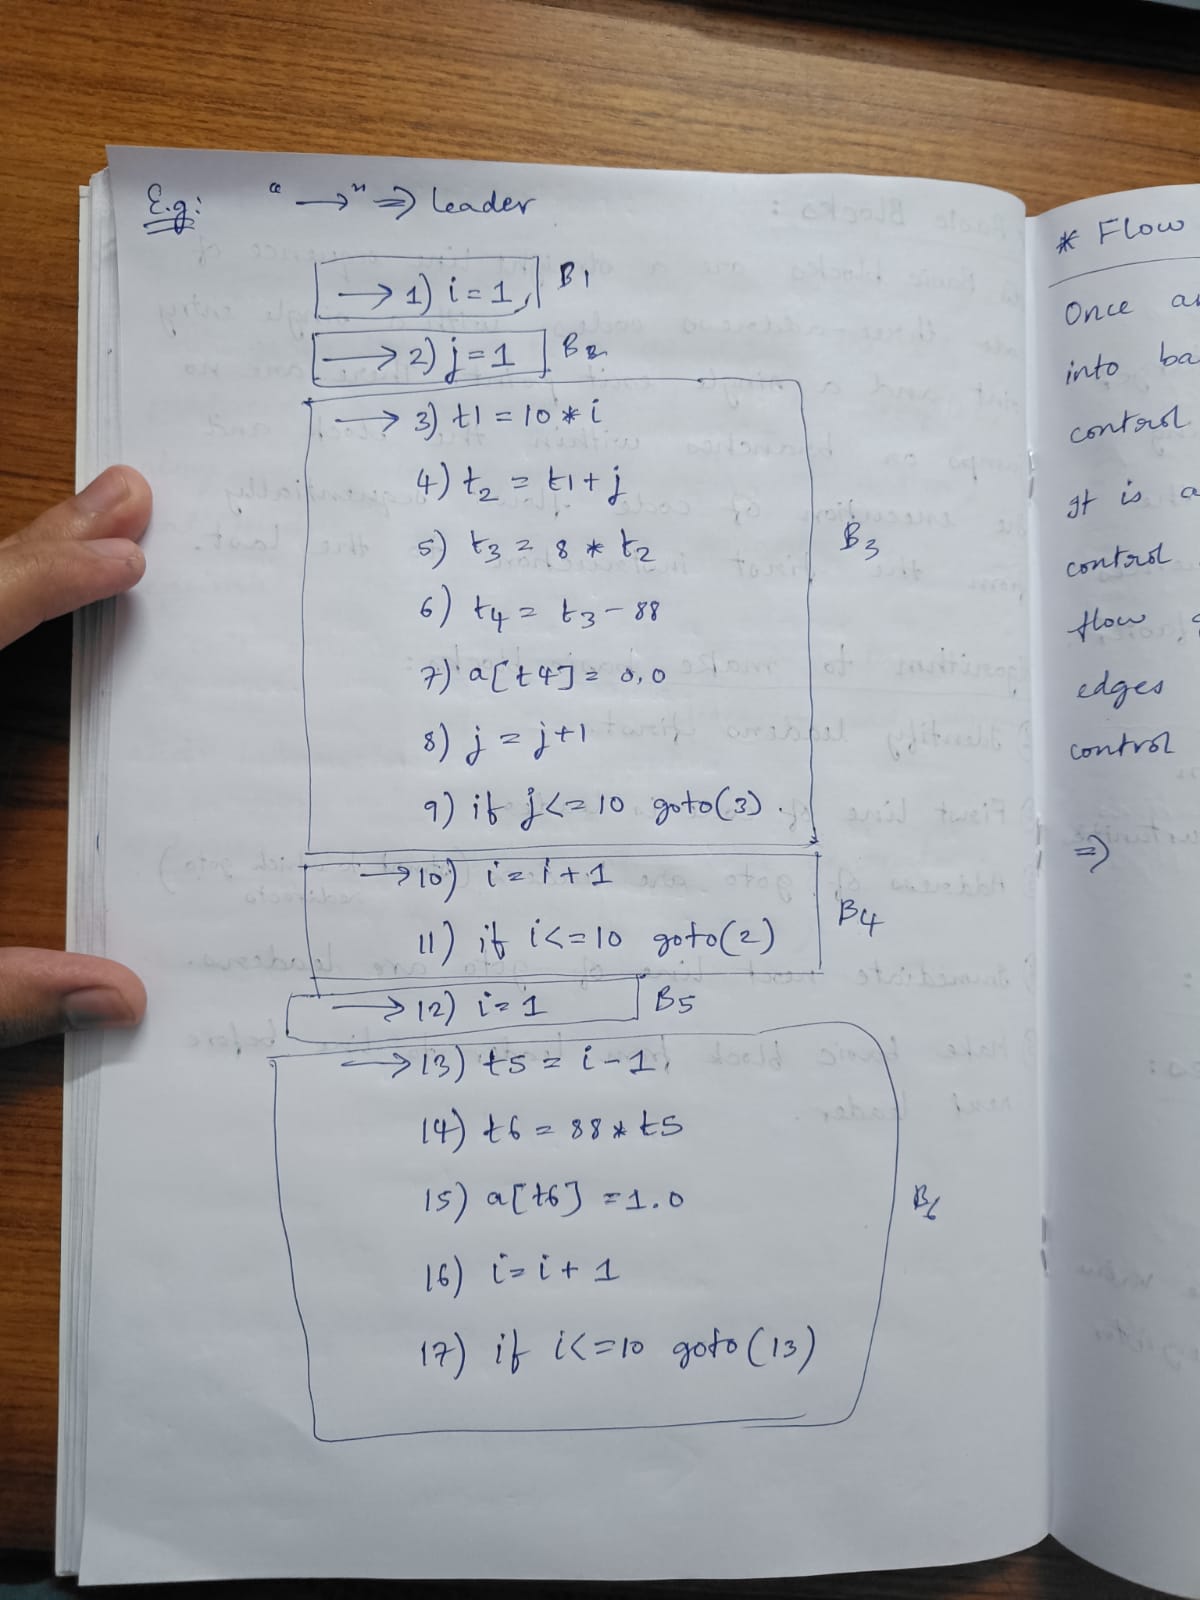 E.g: "→" ⇒ leader
→ 1) i = 1, B1
→ 2) j = 1 B2
→ 3) t1 = 10 * i
4) t2 = t1 + j
5) t3 = 8 * t2
B3
6) t4 = t3 - 88
7) a[t4] = 0.0
8) j = j+1
9) if j <= 10 goto(3).
→ 10) i = i + 1
B4
11) if i <= 10 goto(2)
→ 12) i = 1 B5
→ 13) t5 = i - 1,
14) t6 = 88 * t5
15) a[t6] = 1.0
B6
16) i = i + 1
17) if i <= 10 goto (13)
* Flow
Once
into
control
It is
control
flow
edges
control
⇒)